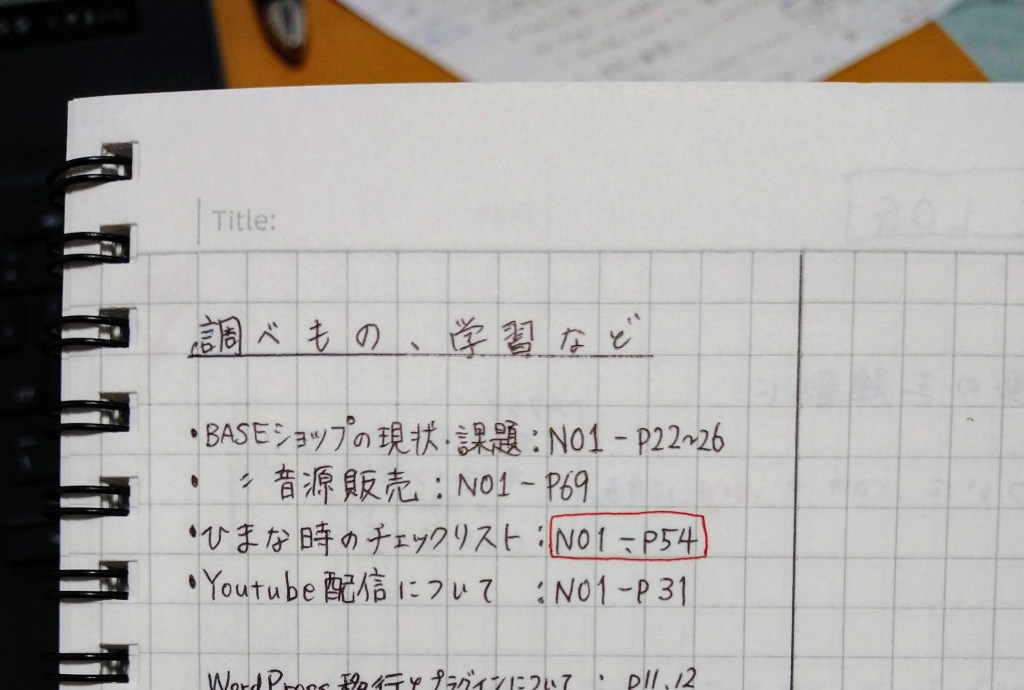 Title:
調べもの、学習など
・BASEショップの現状・課題：NO1-P22~26
・〃音源販売：NO1-P69
・ひまな時のチェックリスト：NO1-P54
・Youtube配信について：NO1-P31
WordPress移行とプラグインについて：P11,12
LOG